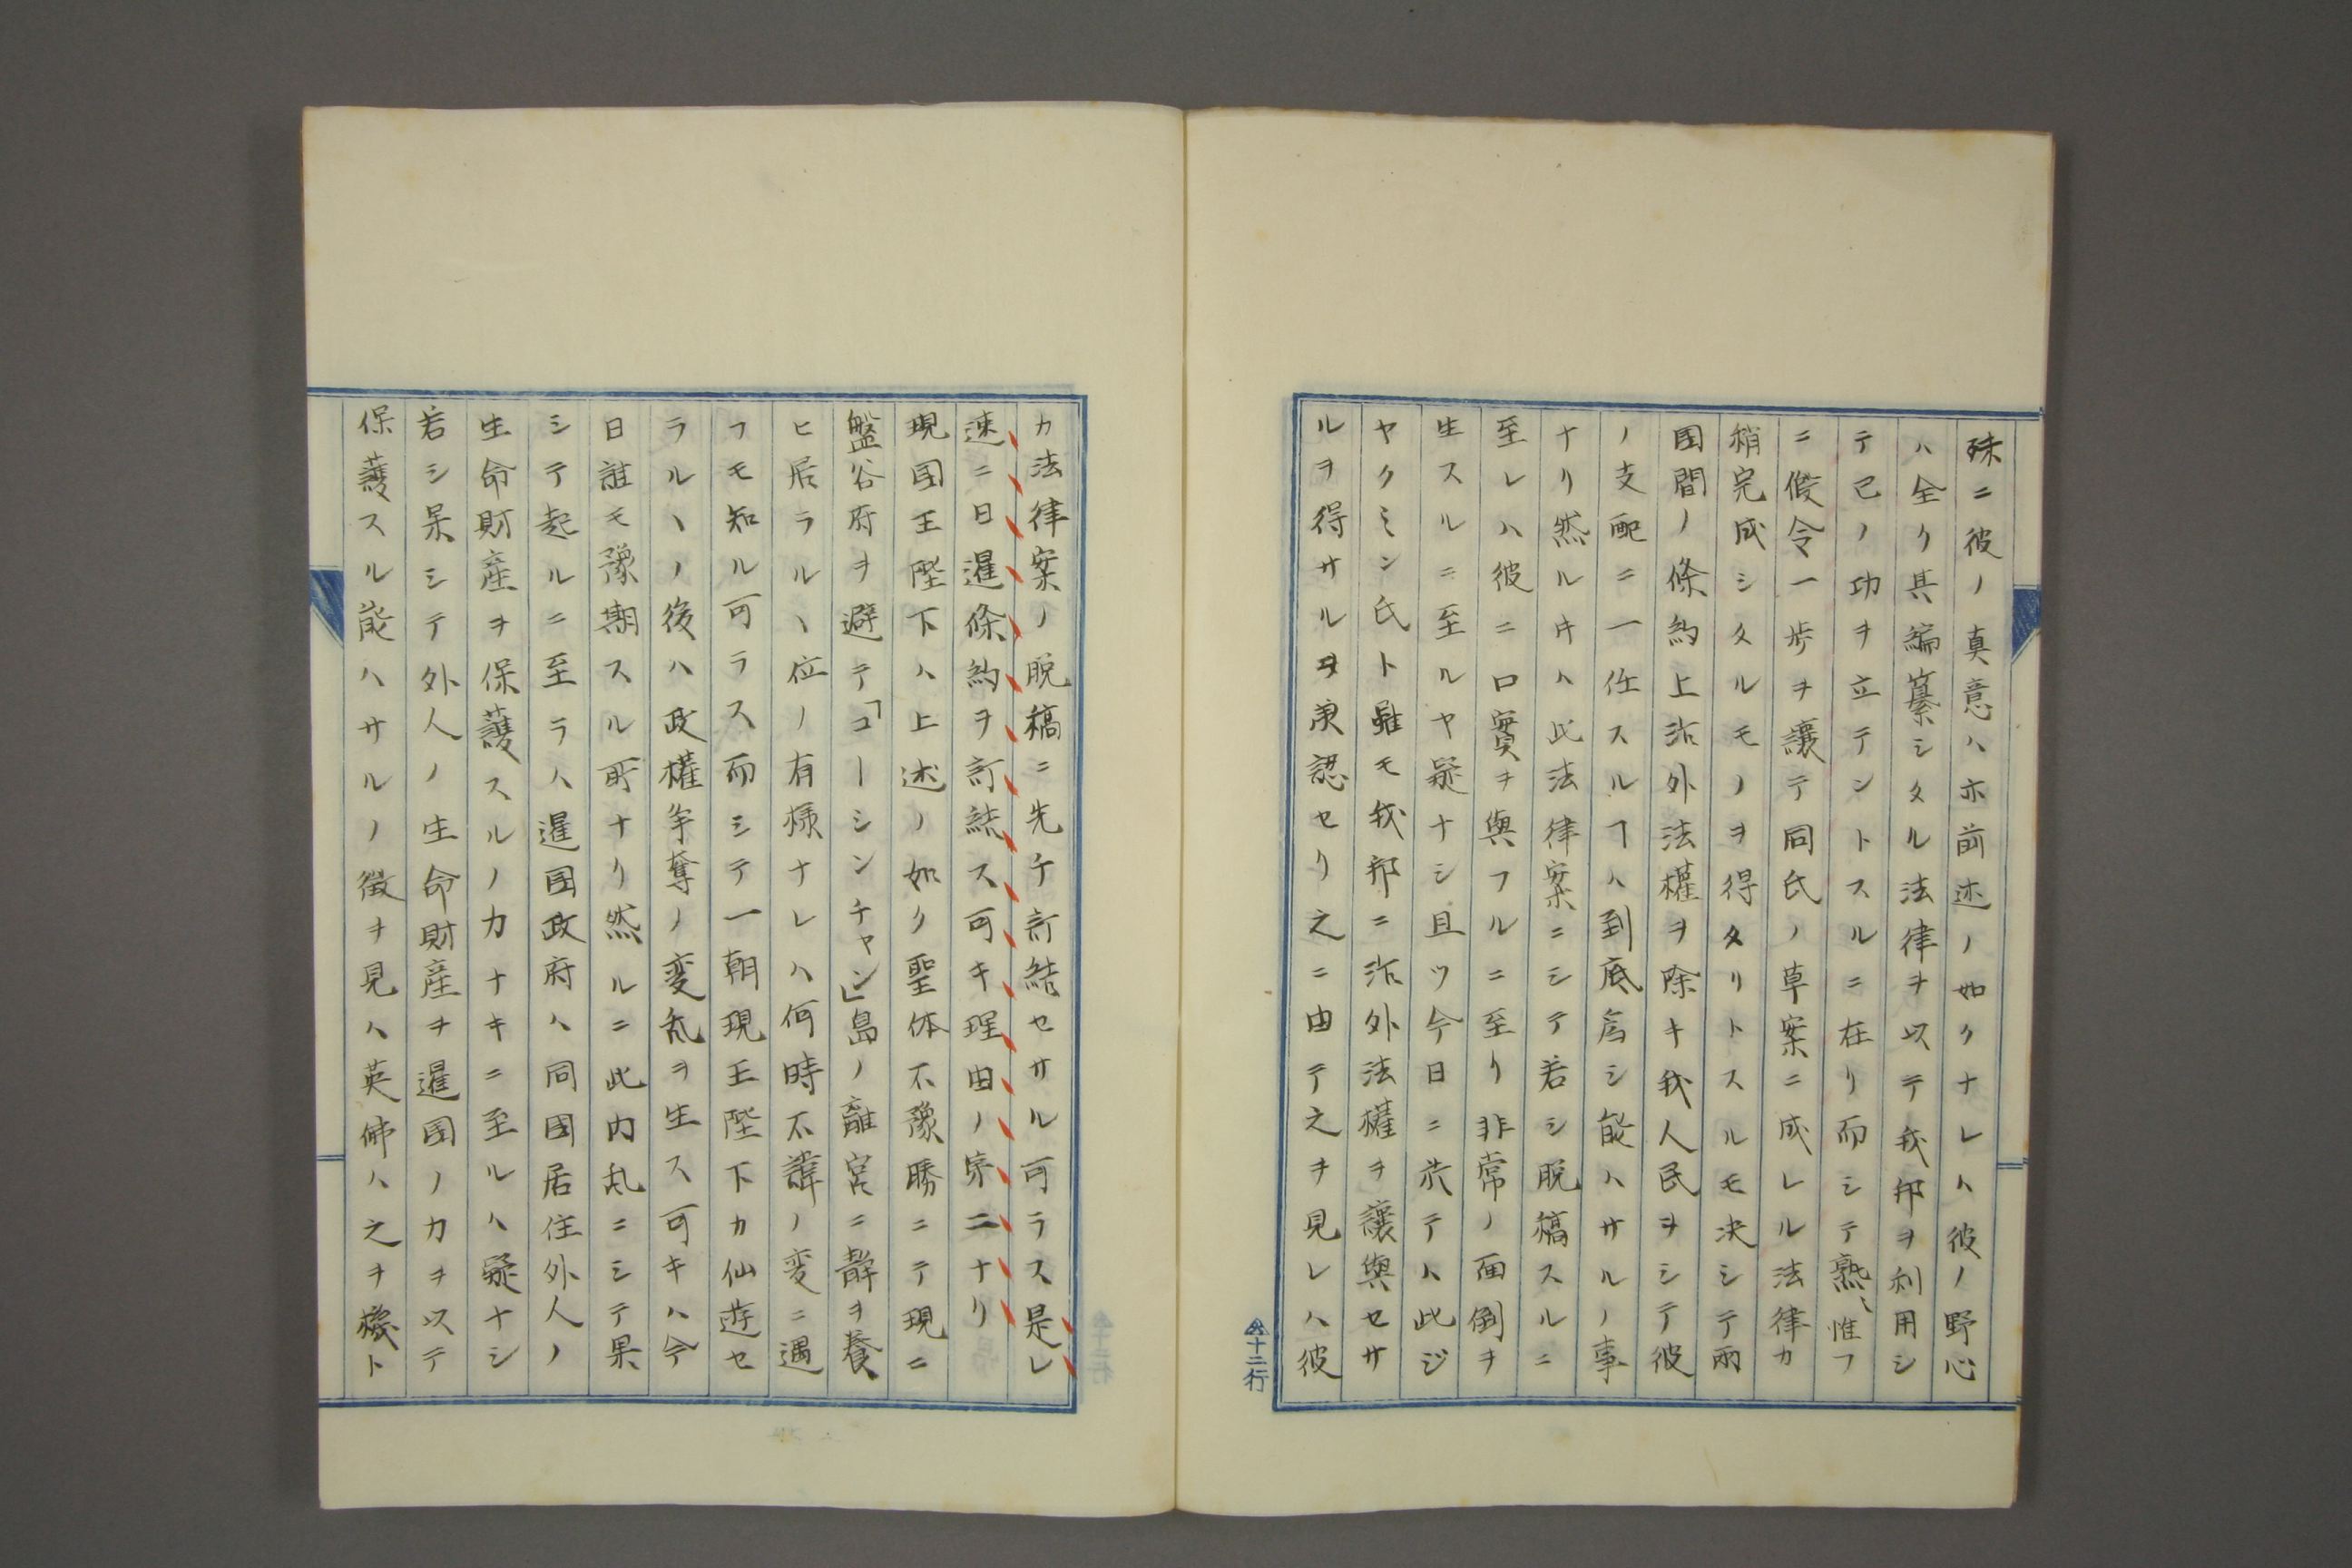 殊ニ彼ノ真意ハ亦前述ノ如クナレハ彼ノ野心
ハ全ク其編纂シタル法律ヲ以テ我邦ヲ利用シ
テ己ノ功ヲ立テントスルニ在リ而シテ熟〻惟フ
ニ假令一歩ヲ讓テ同氏ノ草案ニ成レル法律カ
稍完成シタルモノヲ得タリトスルモ决シテ兩
国間ノ條約上治外法權ヲ除キ我人民ヲシテ彼
ノ支配ニ一任スルヿハ到底為シ能ハサルノ事
ナリ然ルキハ此法律案ニシテ若シ脱稿スルニ
至レハ彼ニ口實ヲ與フルニ至リ非常ノ面倒ヲ
生スルニ至ルヤ疑ナシ且ツ今日ニ於テハ此ジ
ヤクミン氏ト雖モ我邦ニ治外法權ヲ讓與セサ
ルヲ得サルヲ承認セリ之ニ由テ之ヲ見レハ彼
仌十二行
カ法律案ノ脱稿ニ先チ訂結セサル可ラス是レ
速ニ日暹條約ヲ訂結ス可キ理由ノ第二ナリ
現国王陛下ハ上述ノ如ク聖体不豫勝ニテ現ニ
盤谷府ヲ避テ「コーシンチャン」島ノ離宮ニ静ヲ養
ヒ居ラルヽ位ノ有様ナレハ何時不諱ノ変ニ遇
フモ知ル可ラス而シテ一朝現王陛下カ仙遊セ
ラルヽノ後ハ政權争奪ノ変乱ヲ生ス可キハ今
日誰モ豫期スル所ナリ然ルニ此内乱ニシテ果
シテ起ルニ至ラハ暹国政府ハ同國居住外人ノ
生命財産ヲ保護スルノカナキニ至ルハ疑ナシ
若シ果シテ外人ノ生命財産ヲ暹国ノカヲ以テ
保護スル能ハサルノ徴ヲ見ハ英佛ハ之ヲ機ト